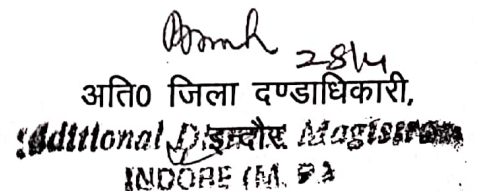 28/4
अति० जिला दण्डाधिकारी,
Additional District इन्दौर Magistrate
INDORE (M. P.)